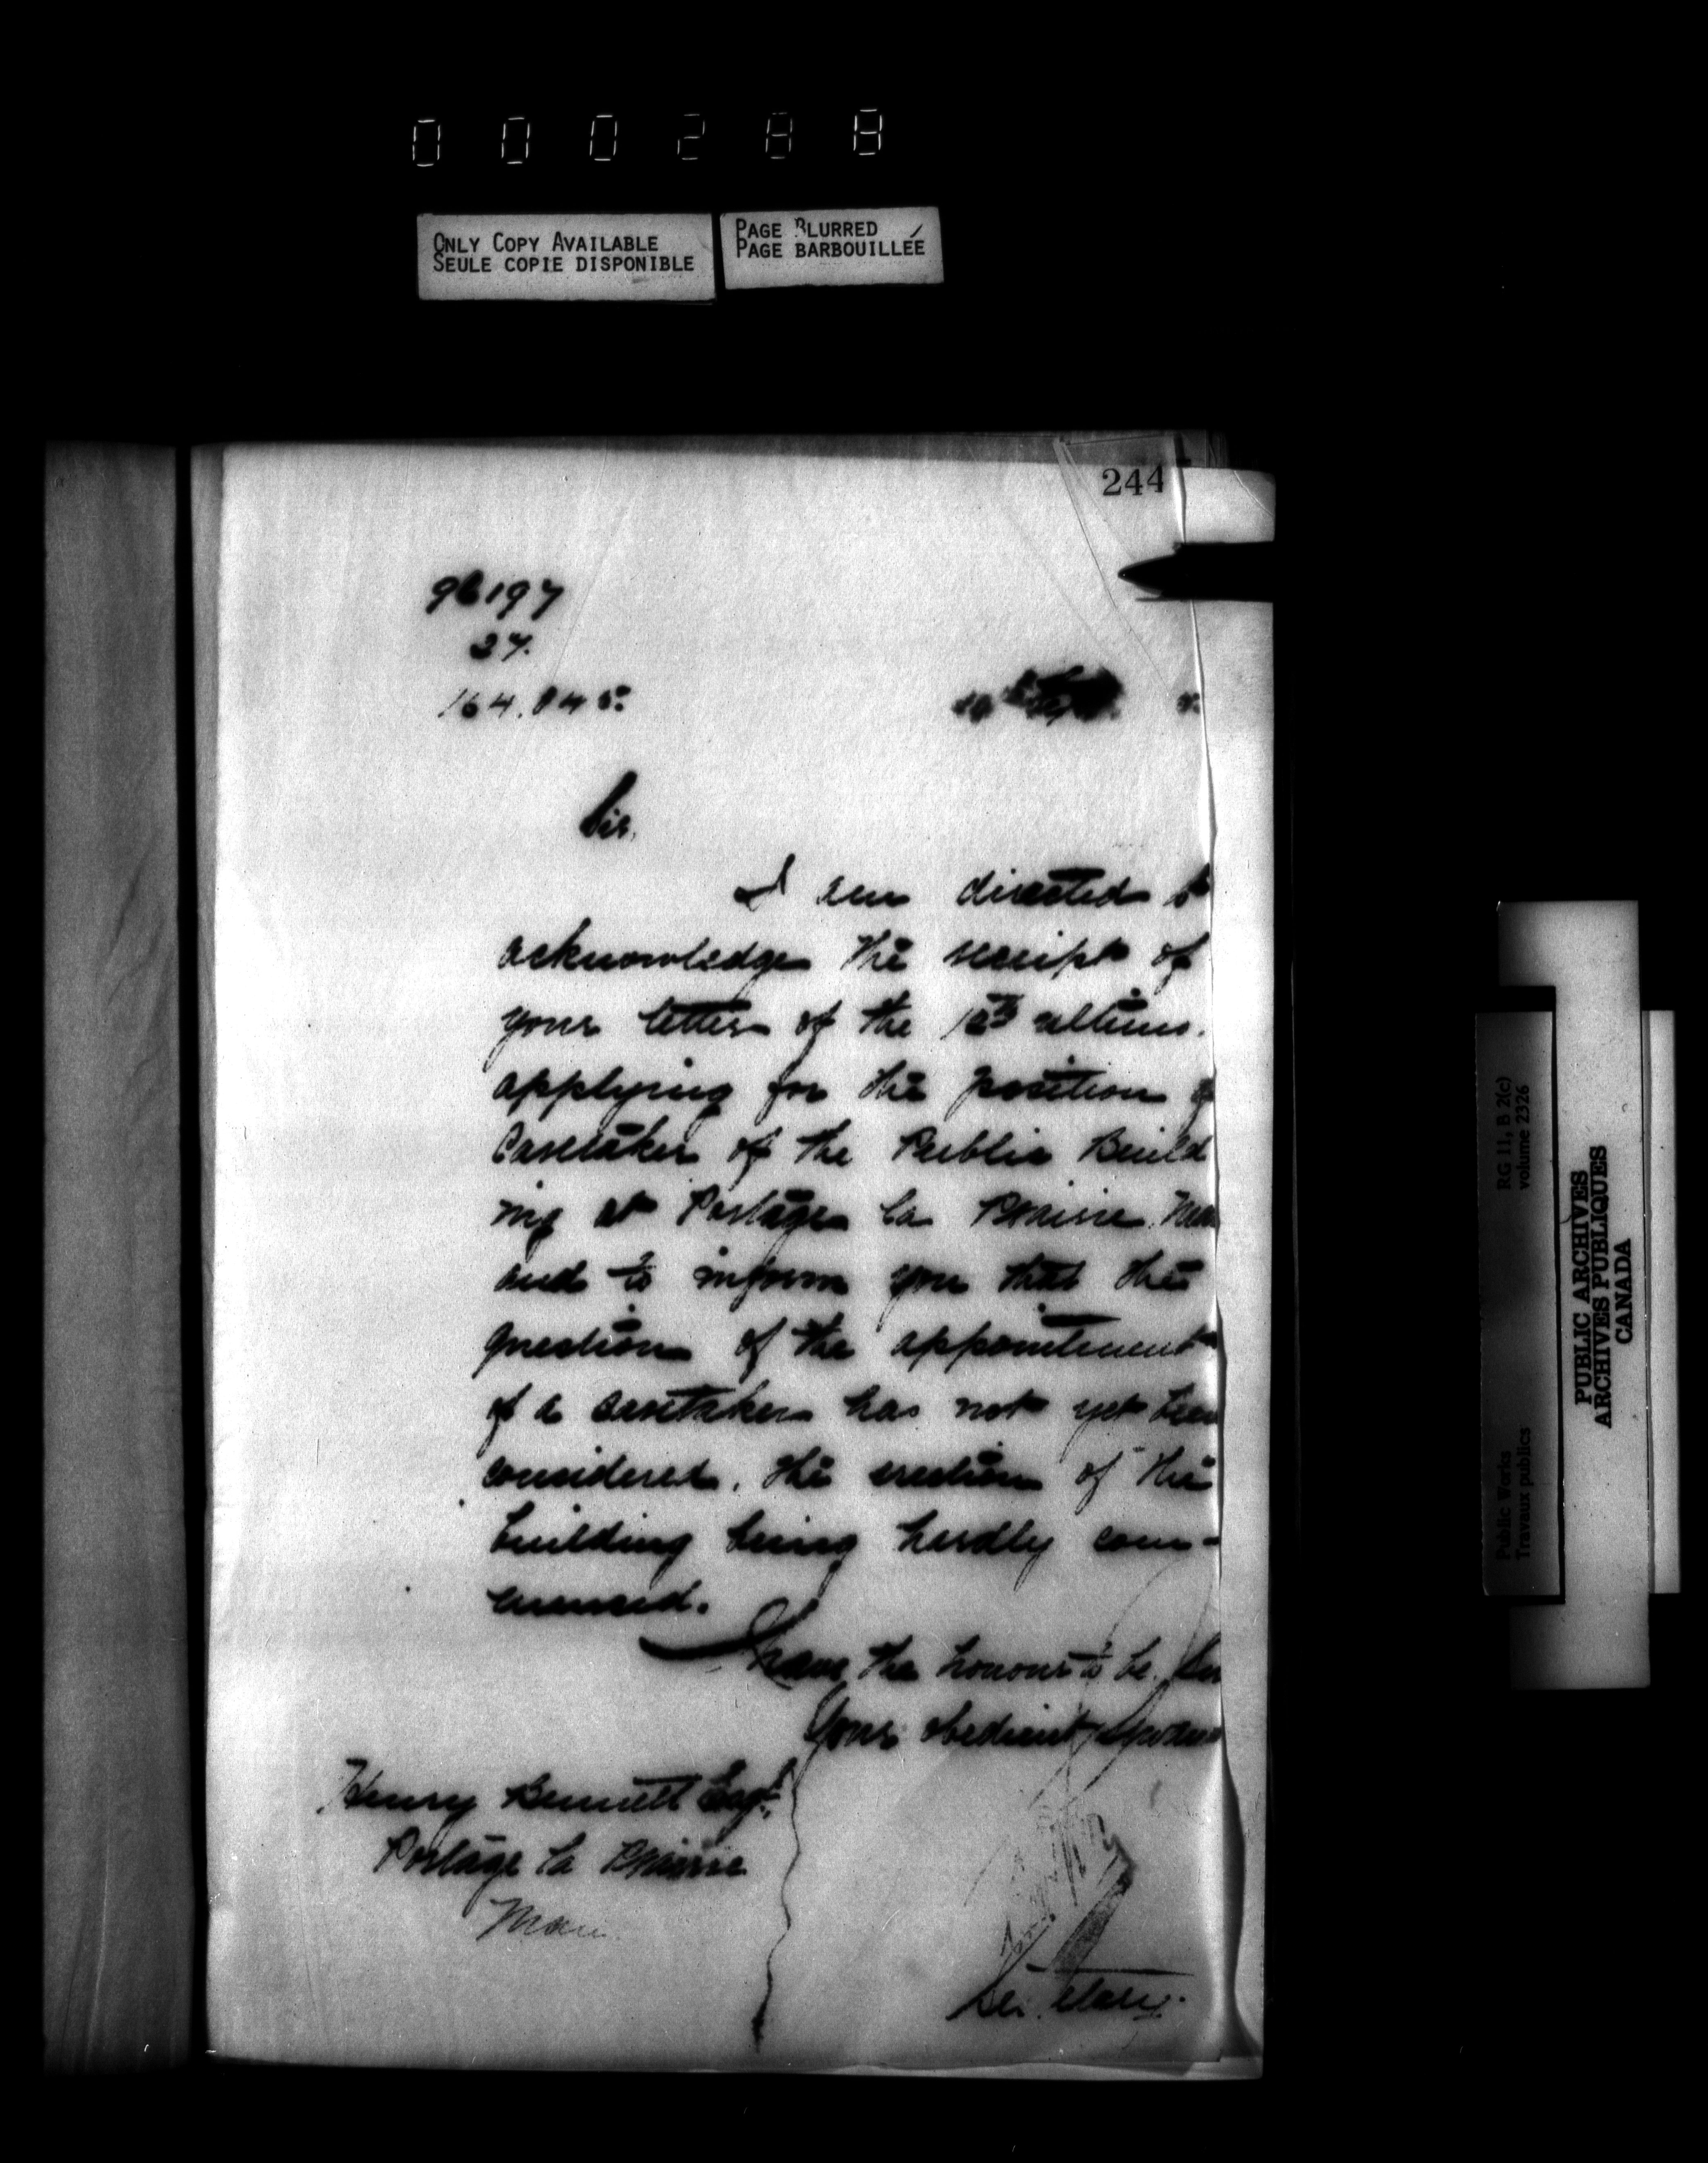 000288
ONLY COPY AVAILABLE
SEULE COPIE DISPONIBLE
PAGE BLURRED
PAGE BARBOUILLÉE
244
96197
27.
164.845
Sir,
I am directed to
acknowledge the receipt of
your letter of the ultimo.
applying for the position of
Caretaker of the Public Build
ing at Portage la Prairie Man
and to inform you that the
question of the appointment
of a caretaker has not yet been
considered, the erection of the
building being hardly com-
menced.
I have the honour to be, Sir
Your obedient Servant
Henry Bennett Esqr.
Portage la Prairie
Man.
Secretary.
RG 11, B 2(c)
volume 2326
Public Works
Travaux publics
PUBLIC ARCHIVES
ARCHIVES PUBLIQUES
CANADA